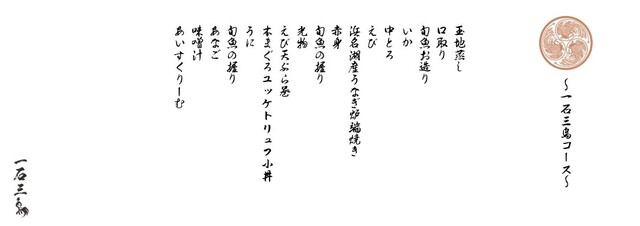 〜一石三鳥コース〜
玉地蒸し
口取り
旬魚お造り
いか
中とろ
えび
浜名湖産うなぎ炉端焼き
赤身
旬魚の握り
光物
えび天ぷら巻
本まぐろユッケトリュフ小丼
うに
旬魚の握り
あなご
味噌汁
あいすくりーむ
一石三鳥